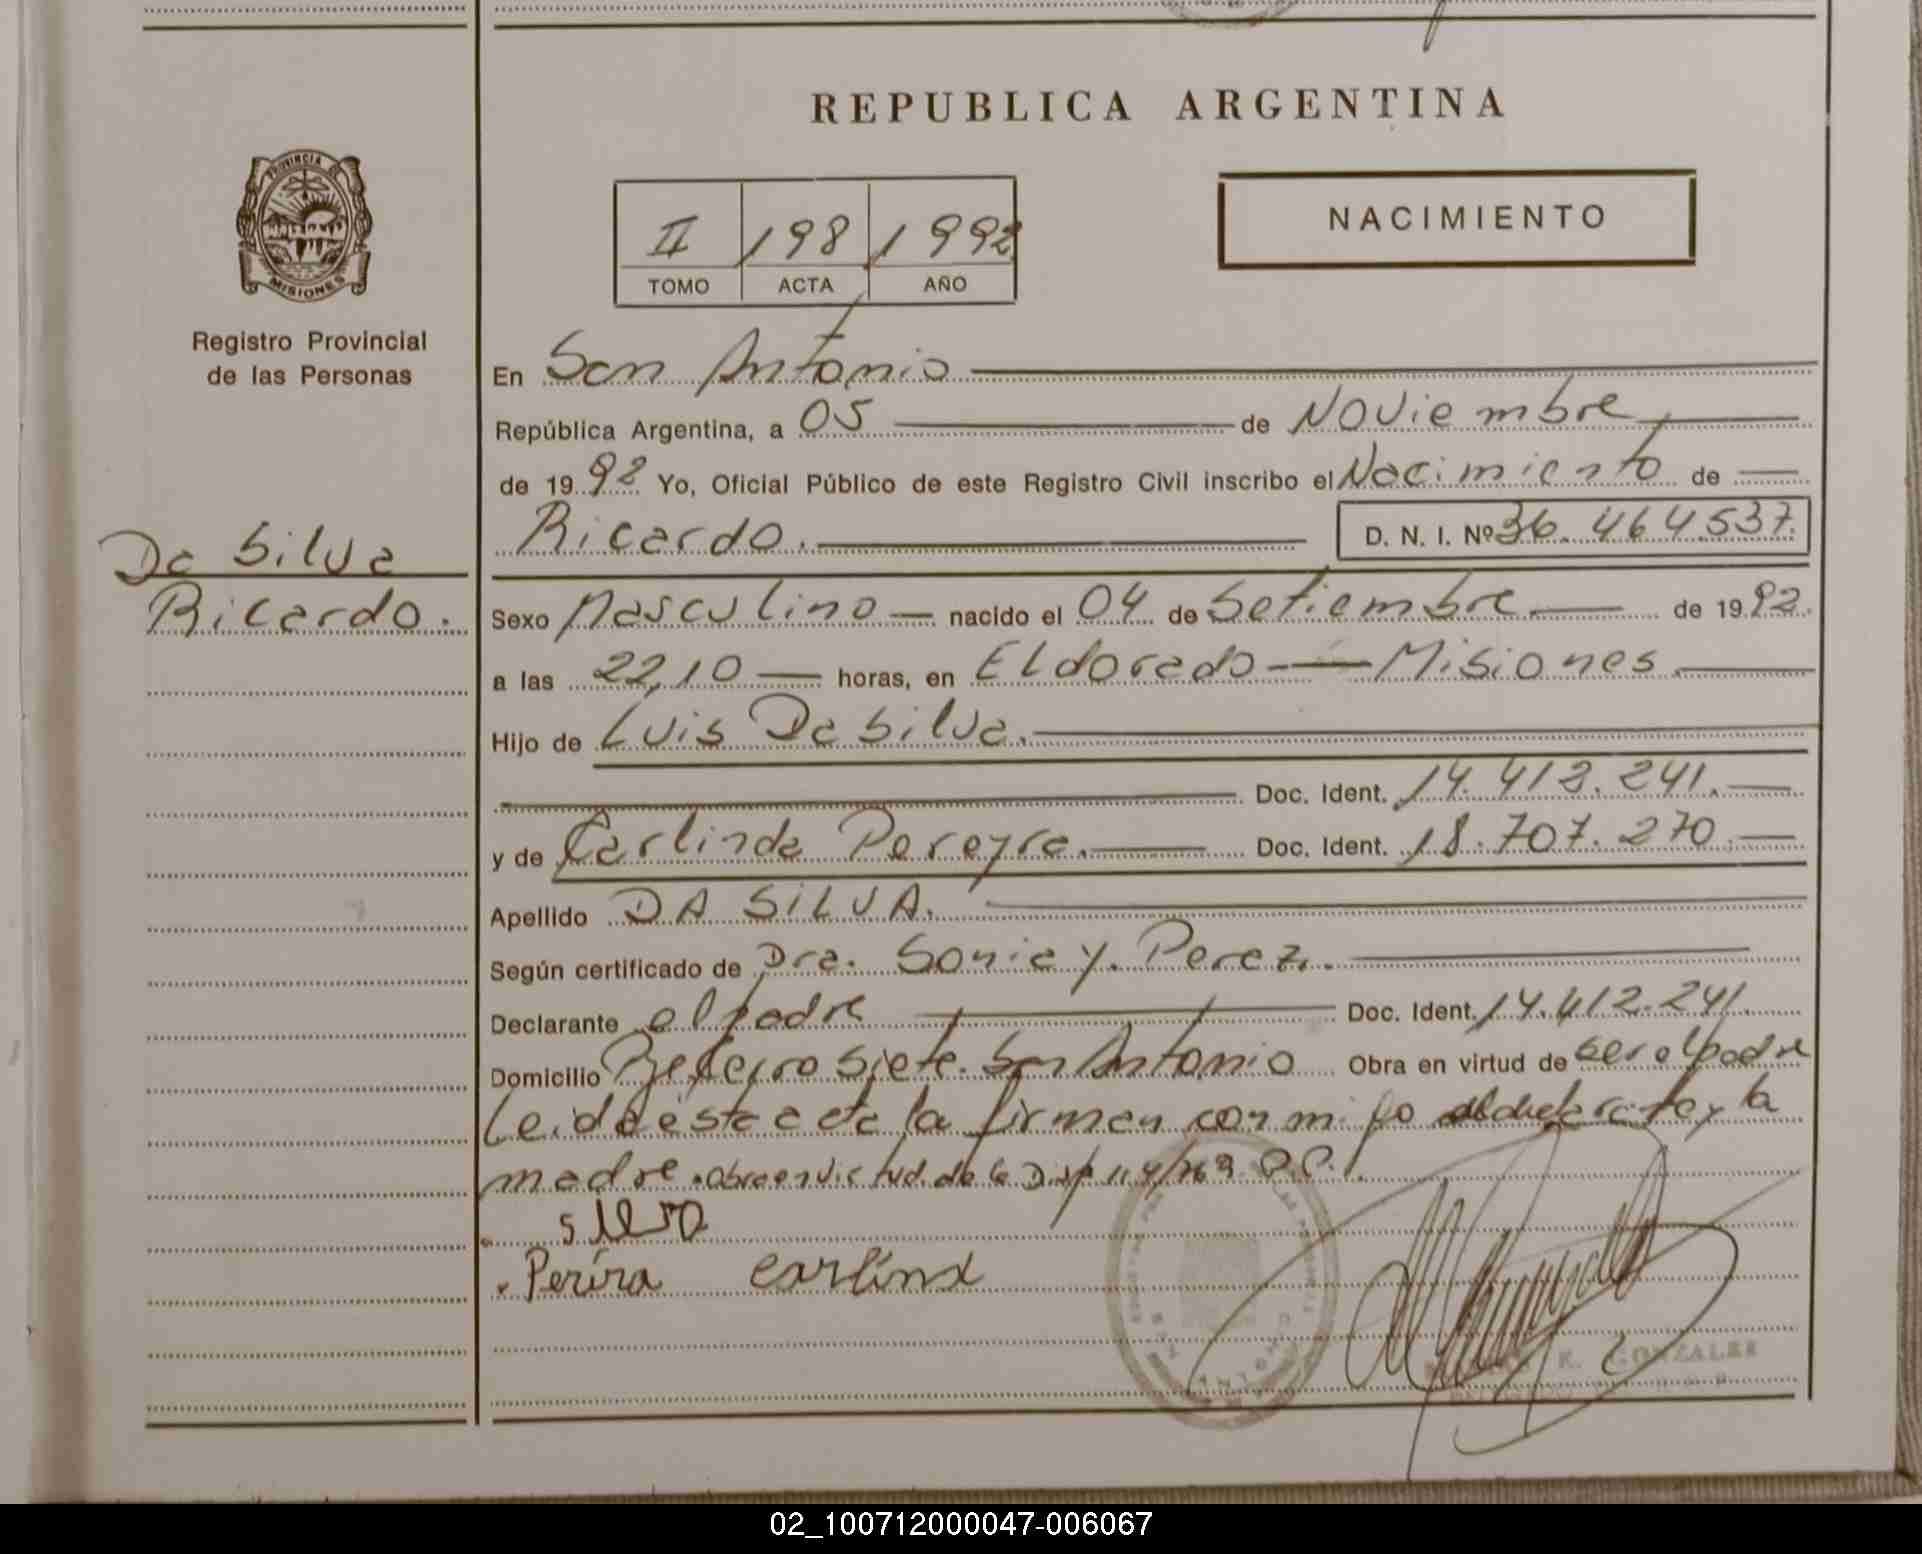 REPUBLICA ARGENTINA
PROVINCIA DE
MISIONES
Registro Provincial
de las Personas
II 198 1992
TOMO ACTA AÑO
NACIMIENTO
En San Antonio
República Argentina, a 05 de Noviembre
de 1992 Yo, Oficial Público de este Registro Civil inscribo el Nacimiento de
Ricardo. D. N. I. Nº 36.464.537.
Da Silva
Ricardo.
Sexo Masculino nacido el 04 de Setiembre de 1992.
a las 22,10 horas, en Eldorado Misiones
Hijo de Luis Da Silva.
Doc. Ident. 14.412.241.
y de Carlinda Pereyra. Doc. Ident. 18.707.270
Apellido DA SILVA.
Según certificado de Dra. Sonia Y. Perez.
Declarante el padre Doc. Ident. 14.412.241.
Domicilio Siete. San Antonio Obra en virtud de ser el padre
Leida esta acta la firman con migo el declarante y la
madre. Obra en virtud de la
silva
Perira carlind
GONZALEZ
02_100712000047-006067